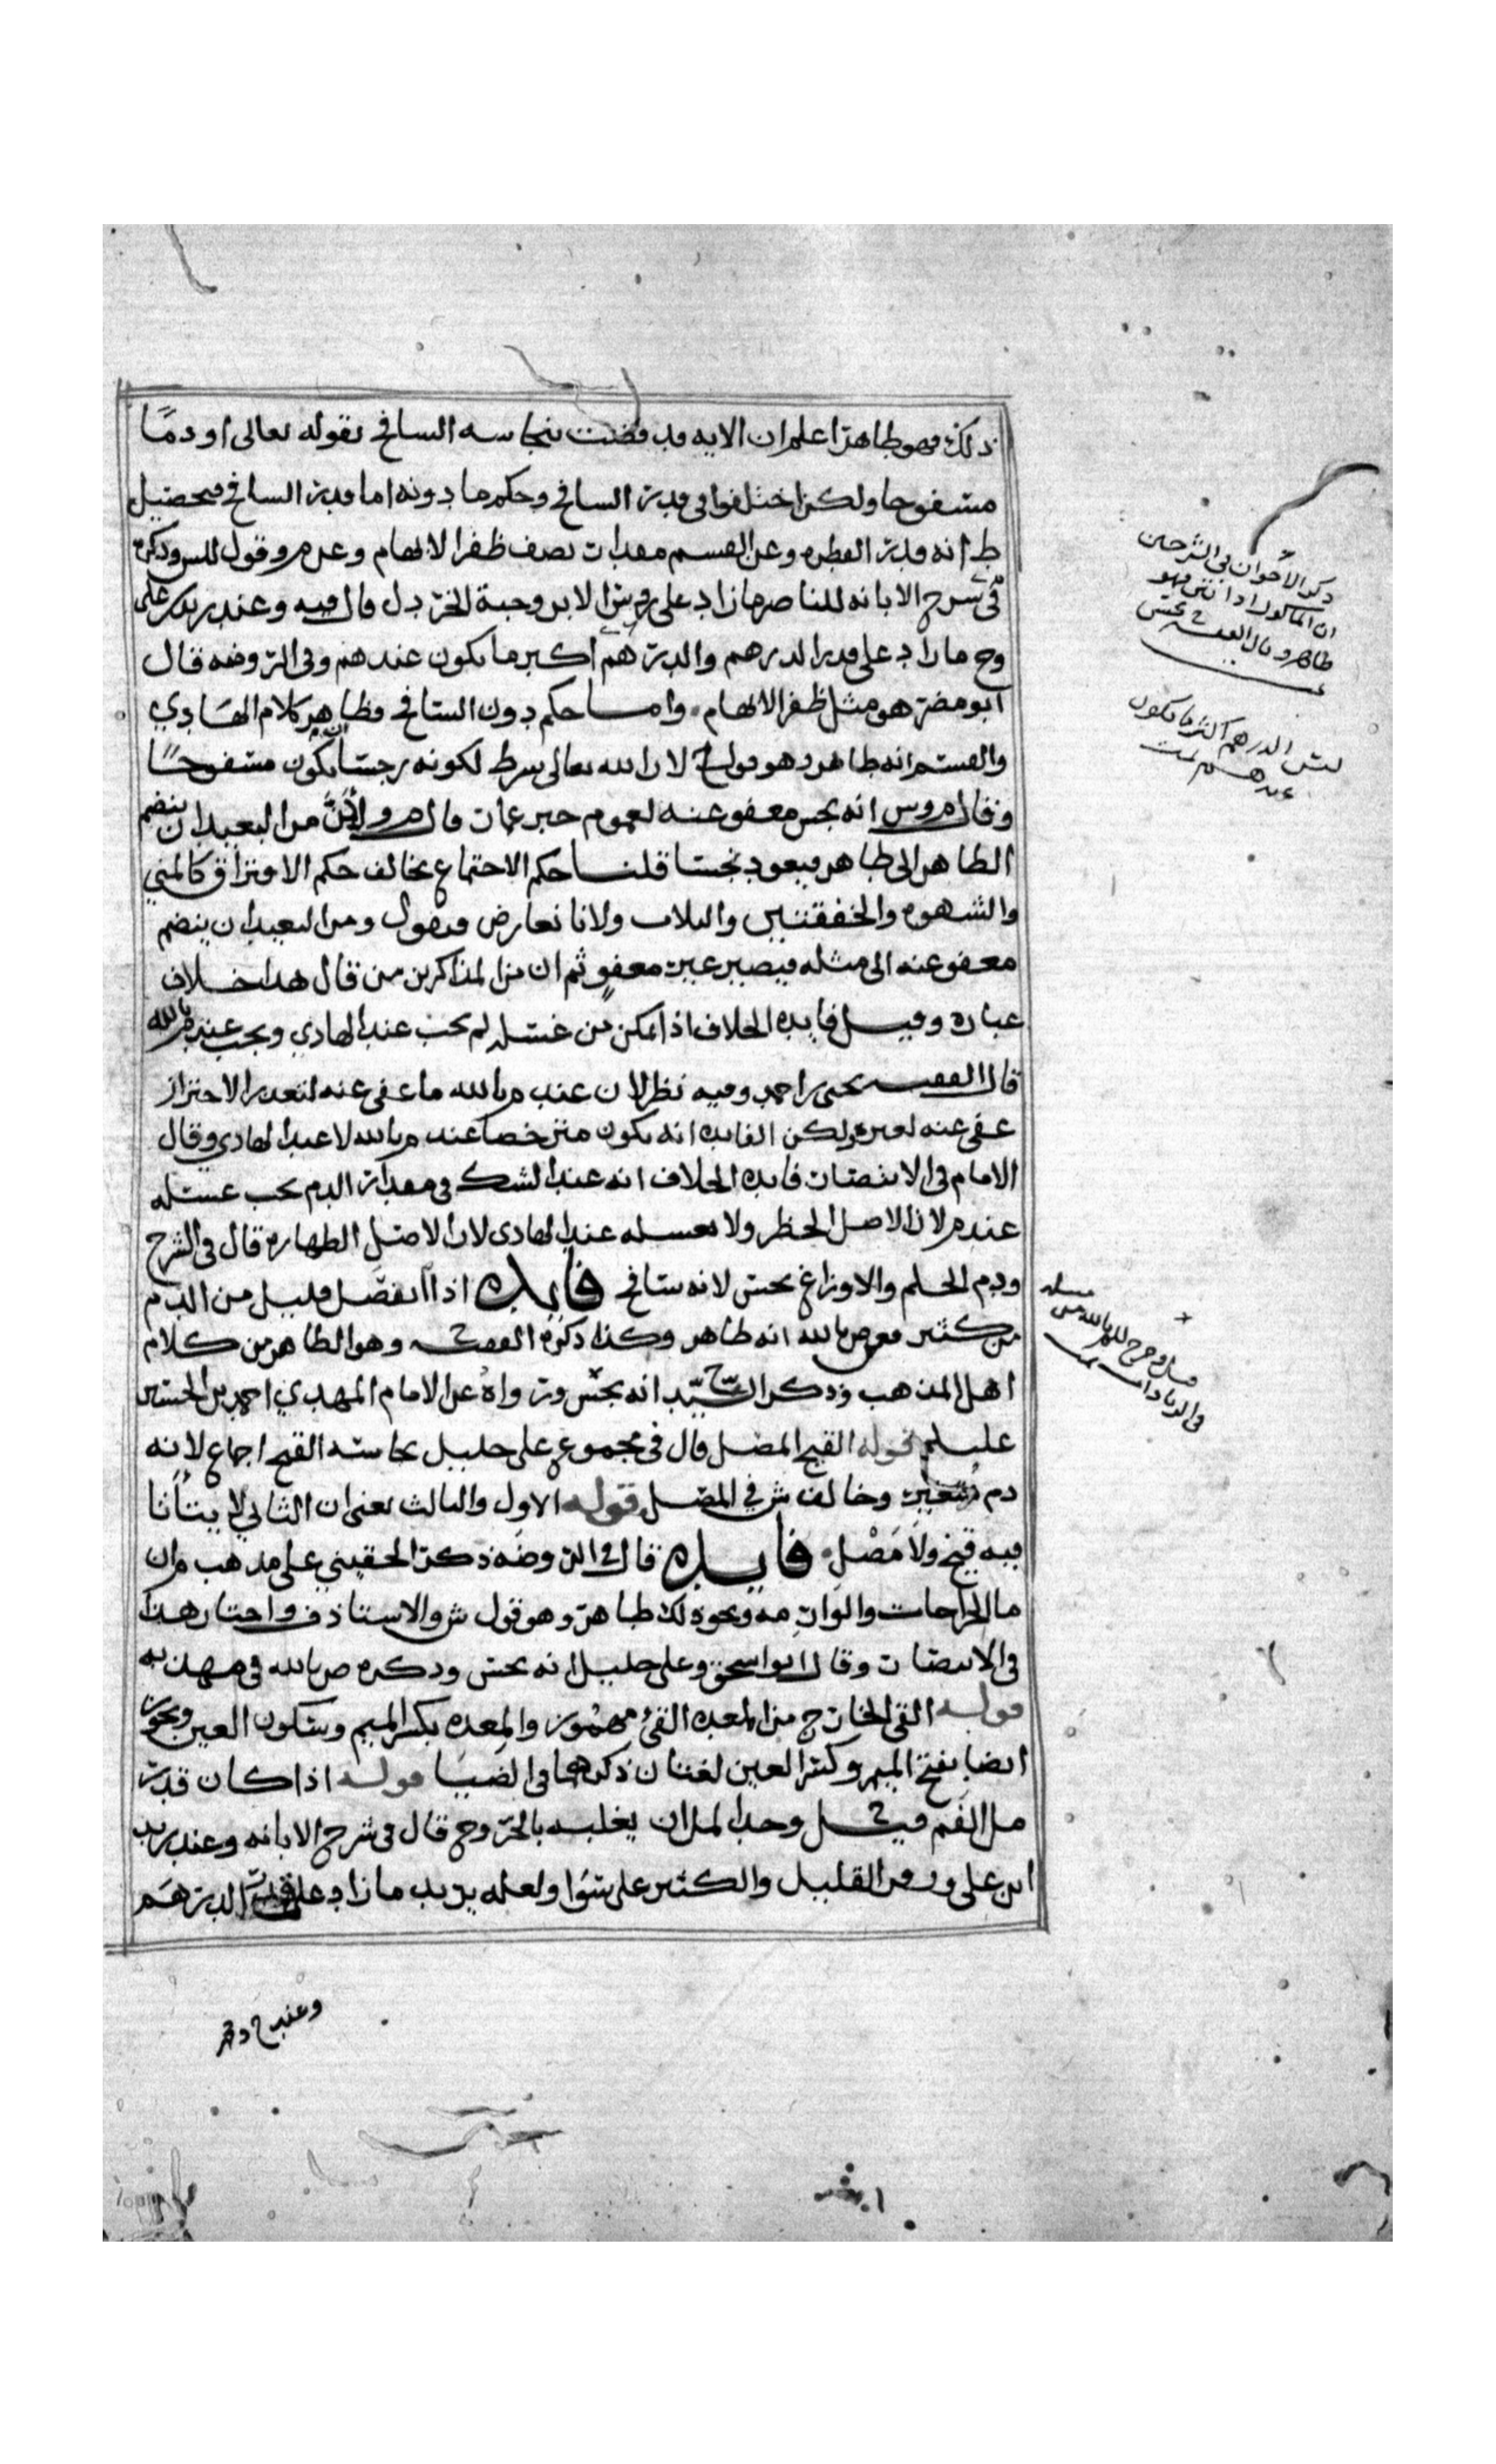 ذلك فهو طاهر اعلم ان الايه قد قضت بنجاسه السافح بقوله تعالى او دمًا
مسفوحا ولكن اختلفوا في قدر السافح وحكم ما دونه اما قدر السافح فتحصيل
ط انه قدر القطره وعن القسم مقدار نصف ظفر الابهام وعن م وقول للس وذكره
في شرح الابانه للناصر ما زاد على رؤس الابر وحبة الخردل قال فيه وعند زيد بن علي
وح ما زاد على قدر الدرهم والدرهم اكبر ما يكون عندهم وفي الروضه قال
ابو مضر هو مثل ظفر الابهام واما حكم دون السافح فظاهر كلام الهادي
والقسم انه طاهر وهو قول ح لان الله تعالى شرط لكونه رجسا ان يكون مسفوحًا
وقال م وس انه نجس معفو عنه لعموم خبر عمار قال م ولأن من البعيد ان ينضم
الطاهر الى طاهر فيعود نجسا قلنا حكم الاجتماع يخالف حكم الافتراق كالمني
والشهوه والخفقتين والثلاث ولانا نعارض فنقول ومن البعيد ان ينضم
معفو عنه الى مثله فيصير غير معفوٍ ثم ان من المذاكرين من قال هذا خلاف
عباره وقيل فايده الخلاف اذا امكن من غسله لم يجب عند الهادي ويجب عند م بالله
قال الفقيه يحيى بن احمد وفيه نظر لان عند م بالله ما عفي عنه لتعذر الاحتراز
عفي عنه لغيره ولكن الفايده انه يكون مترخصا عند م بالله لا عند الهادي وقال
الامام في الانتصار فايده الخلاف انه عند الشك في مقدار الدم يجب غسله
عند م لان الاصل الحظر ولا يغسله عند الهادي لان الاصل الطهاره قال في الشرح
ودم الحلم والاوزاغ نجس لانه سافح فايده اذا انفصل قليل من الدم
من كثير فعن ص بالله انه طاهر وكذا ذكره الفقيه ح وهو الظاهر من كلام
اهل المذهب وذكر السيد ح انه نجس ورواه عن الامام المهدي احمد بن الحسين
عليلم قوله القيح المصل قال في مجموع علي خليل نجاسه القيح اجماع لانه
دم متغير وخالف ش في المصل قوله الاول والثالث يعني ان الثاني لا يتأتا
فيه قيح ولا مَصْل فايده قال في الروضه ذكر الحقيني على مذهب م ان
ما الجراحات والوارمه ونحو ذلك طاهر وهو قول ش والاستاذ ف واختار هذا
في الانتصار وقال ابو اسحق وعلي خليل انه نجس وذكره ص بالله في مهذبه
قوله القي الخارج من المعده القيء مهموز والمِعده بكسر الميم وسكون العين ويجوز
ايضا بفتح الميم وكسر العين لغتان ذكرهما في الضيا قوله اذا كان قدر
مل الفم قيل ح وحد المل ان يغلبه بالخروج قال في شرح الابانه وعند زيد
ابن علي وزفر القليل والكثير على سوا ولعله يريد ما زاد على قدر الدرهم
وعند ح وقم
ذكر الاخوان في الشرحين
ان الماكول اذا نتن فهو
طاهر وقال الفقيه ح نجس
الدرهم اكثر ما يكون
عندهم تمت